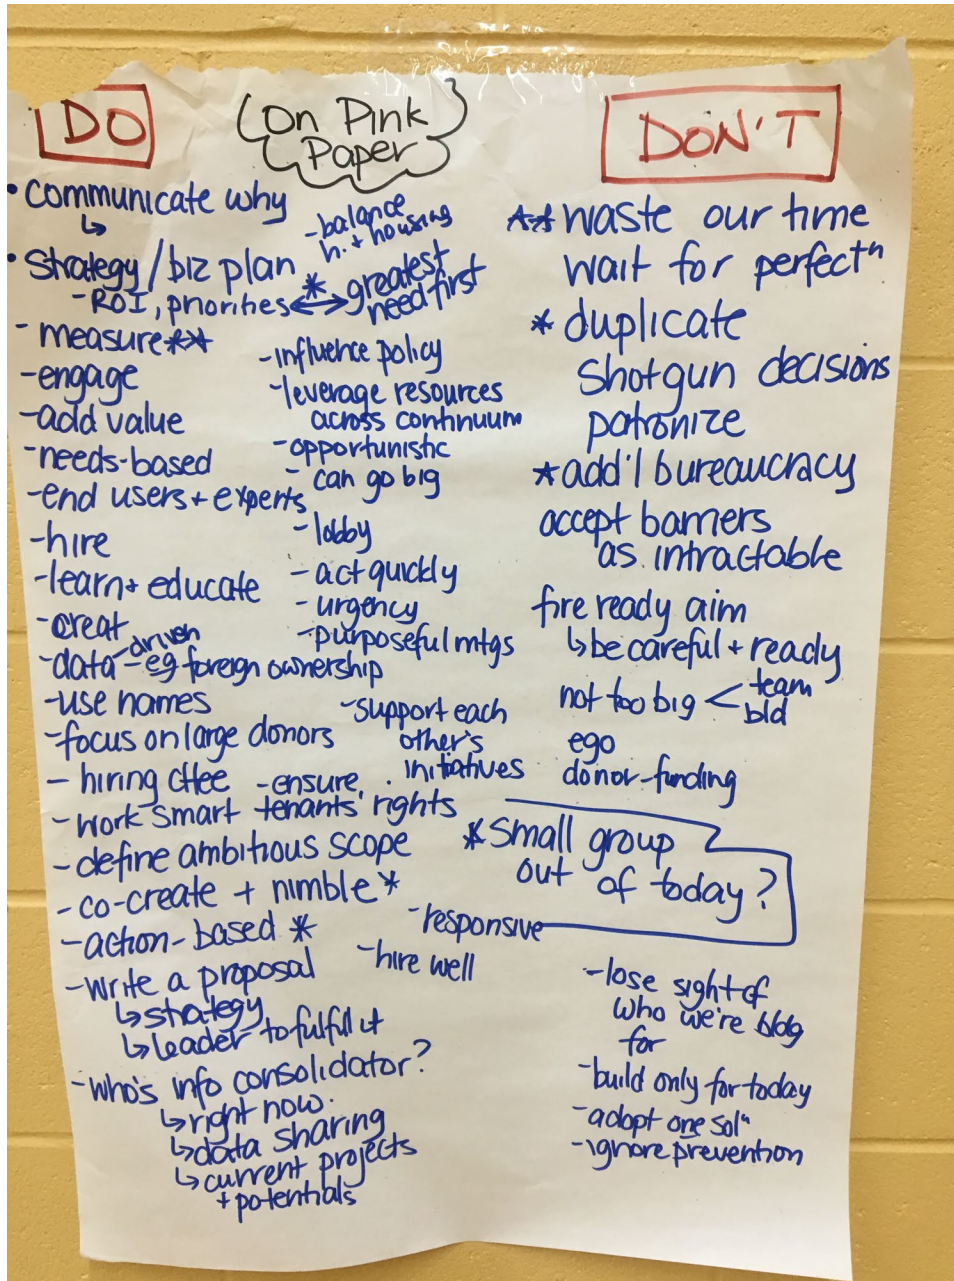 DO
On Pink
Paper
DON'T
• communicate why
↳
• strategy/biz plan
- ROI, priorities ↔ * greatest
need first
- balance
h. + housing
- measure **
- engage
- add value
- needs-based
- end users + experts
- hire
- learn + educate
- creat
- data-driven - eg foreign ownership
- use names
- focus on large donors
- hiring cttee
- work smart
- define ambitious scope
- co-create + nimble *
- action-based *
- write a proposal
↳ strategy
↳ leader to fulfill it
- who's info consolidator?
↳ right now.
↳ data sharing
↳ current projects
+ potentials
- influence policy
- leverage resources
across continuum
- opportunistic
- can go big
- lobby
- act quickly
- urgency
- purposeful mtgs
- support each
other's
initiatives
- ensure
tenants' rights
- responsive
- hire well
** waste our time
wait for perfectⁿ
* duplicate
shotgun decisions
patronize
* add'l bureaucracy
accept barriers
as intractable
fire ready aim
↳ be careful + ready
not too big < team
bld
ego
donor-funding
* small group
out of today?
- lose sight of
who we're bldg
for
- build only for today
- adopt one solⁿ
- ignore prevention